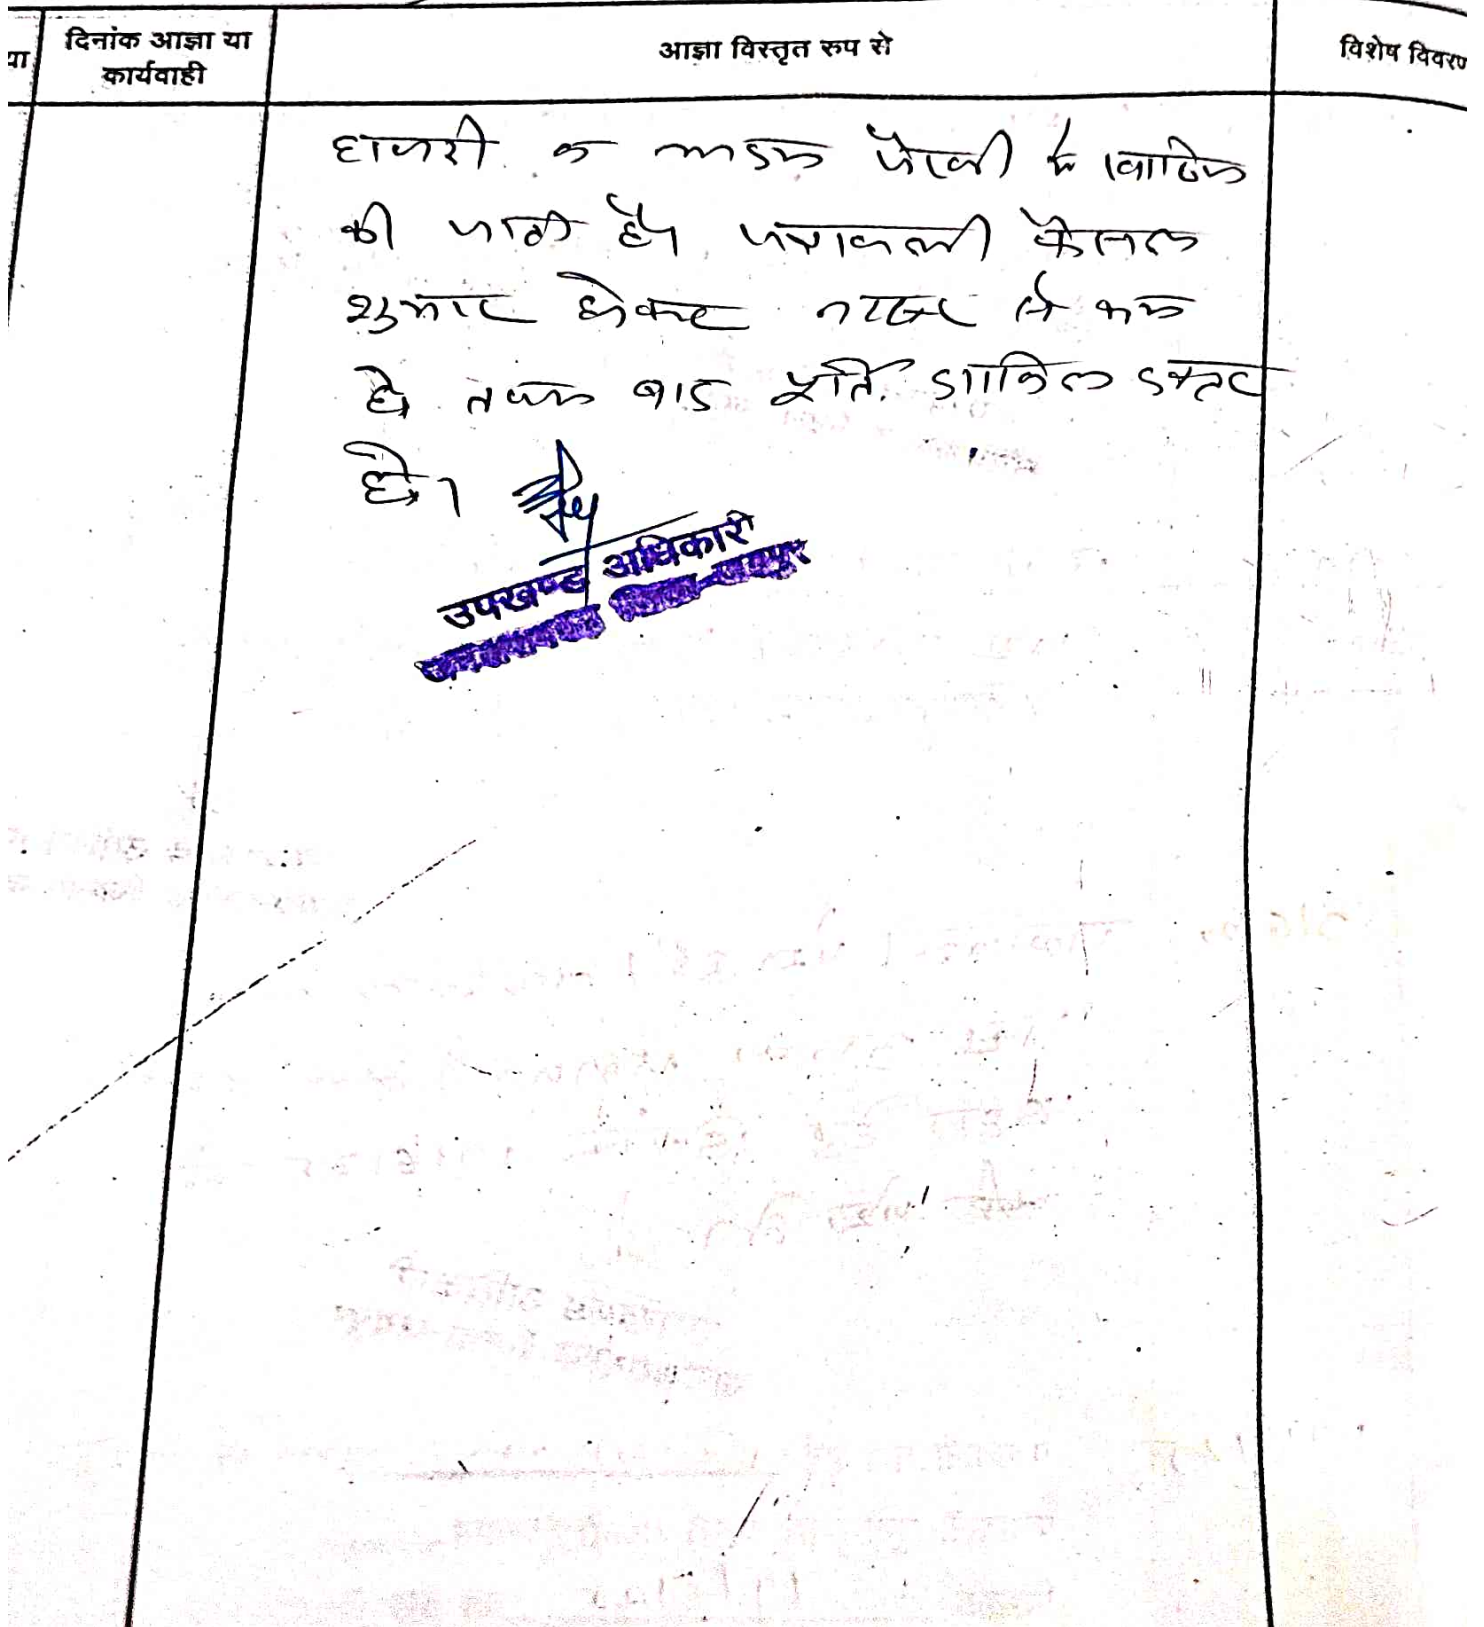 या
दिनांक आज्ञा या
कार्यवाही
आज्ञा विस्तृत रुप से
विशेष विवरण
हाजरी व अदम पैरवी में खारिज
की जाती है। पत्रावली फैसल
शुमार होकर नम्बर से कम
हो तथा बाद पूर्ति दाखिल दफ्तर
हो।
उपखण्ड अधिकारी